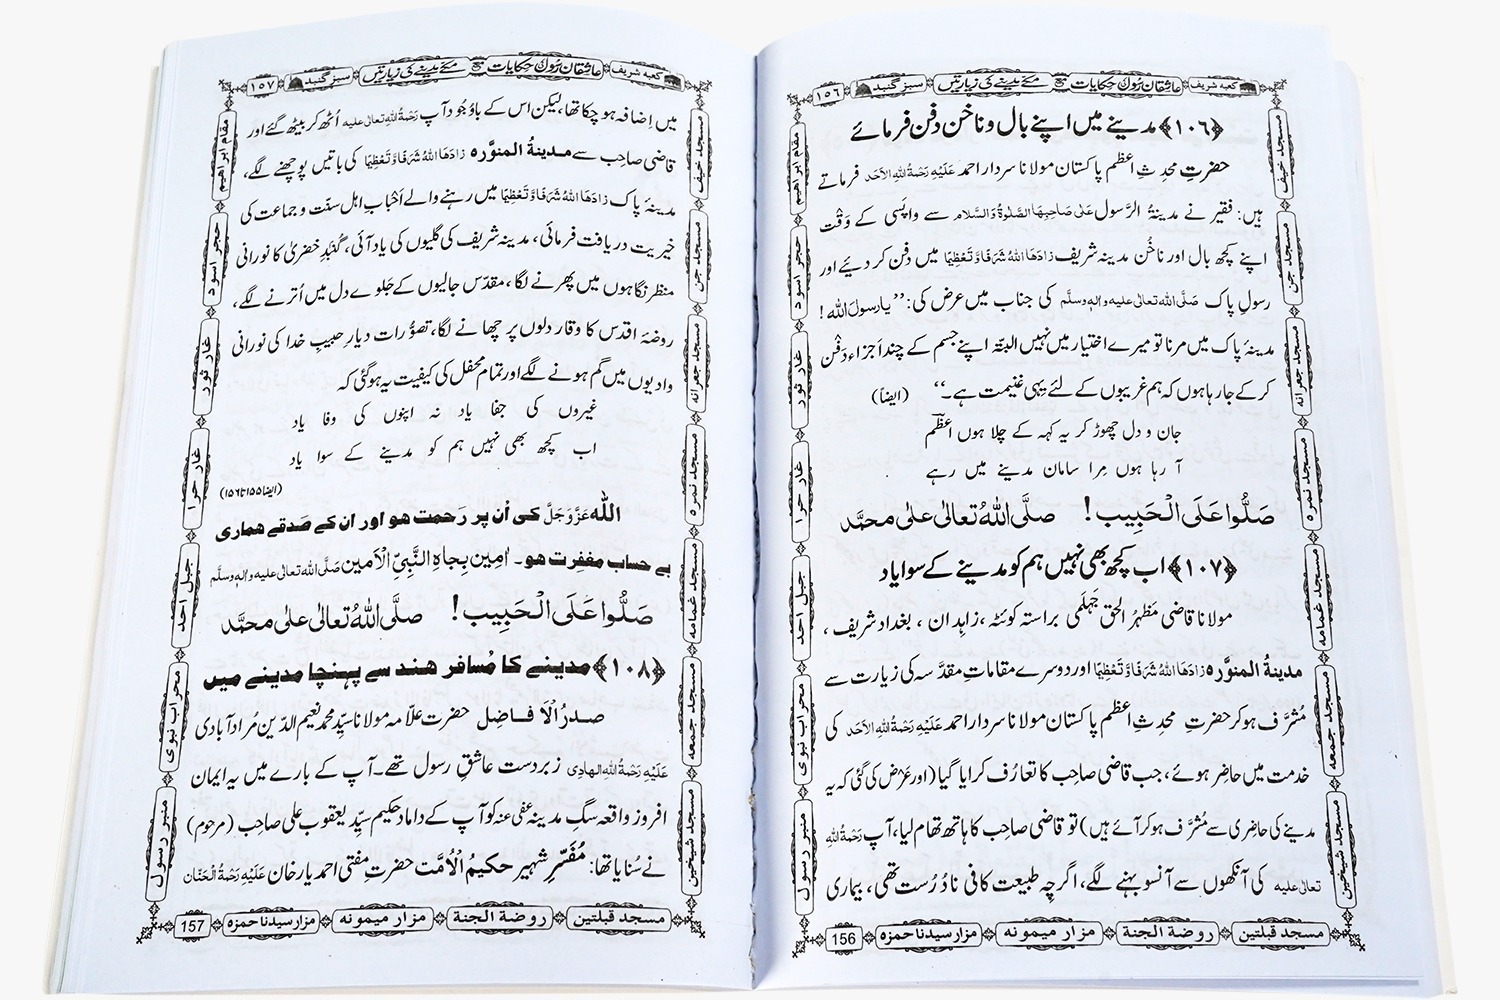 کعبہ شریف عاشقان رسول کی حکایات مع مکے مدینے کی زیارتیں سبز گنبد ۱۵۶
﴿۱۰۶﴾ مدینے میں اپنے بال و ناخن دفن فرمائے
حضرتِ محدثِ اعظم پاکستان مولانا سردار احمد عَلَیْہِ رَحْمَۃُ اللہِ الْاَحَد فرماتے
ہیں: فقیر نے مدینۃُ الرَّسول عَلٰی صَاحِبِہَا الصَّلٰوۃُ وَالسَّلَام سے واپَسی کے وَقْت
اپنے کچھ بال اور ناخُن مدینہ شریف زَادَھَا اللہُ شَرَفًا وَّتَعْظِیْمًا میں دفْن کر دیئے اور
رسولِ پاک صَلَّی اللہ تعالٰی علیہ واٰلہٖ وسلَّم کی جناب میں عرض کی: ’’یارسولَ اللہ!
مدینۂ پاک میں مرنا تو میرے اختیار میں نہیں البتّہ اپنے جسم کے چند اَجزاء دَفْن
کرکے جارہا ہوں کہ ہم غریبوں کے لئے یہی غنیمت ہے۔‘‘ (ایضاً)
جان و دل چھوڑ کر یہ کہہ کے چلا ہوں اعظم
آ رہا ہوں مِرا سامان مدینے میں رہے
صَلُّوا عَلَی الْحَبِیب! صلَّی اللہُ تعالٰی علٰی محمَّد
﴿۱۰۷﴾ اب کچھ بھی نہیں ہم کو مدینے کے سوا یاد
مولانا قاضی مَظہَرُ الحق جَہلَمی براستہ کوئٹہ، زاہدان، بغداد شریف،
مدینۃُ المنوَّرہ زَادَھَا اللہُ شَرَفًا وَّتَعْظِیْمًا اور دوسرے مقاماتِ مقدَّسہ کی زیارت سے
مُشرَّف ہوکر حضرتِ محدثِ اعظم پاکستان مولانا سردار احمد عَلَیْہِ رَحْمَۃُ اللہِ الْاَحَد کی
خدمت میں حاضِر ہوئے، جب قاضی صاحِب کا تعارُف کرایا گیا (اور عَرْض کی گئی کہ یہ
مدینے کی حاضِری سے مُشرَّف ہوکر آئے ہیں) تو قاضی صاحِب کا ہاتھ تھام لیا، آپ رَحْمَۃُ اللہِ
تعالٰی علیہ کی آنکھوں سے آنسو بہنے لگے، اگرچِہ طبیعت کافی نادُرُست تھی، بیماری
مسجد قبلتین روضۃ الجنۃ مزار میمونہ مزار سیدنا حمزہ 156
مسجد خیف
مسجد جن
مسجد جعرانہ
مسجد نمرہ
مسجد غمامہ
مسجد جمعہ
مسجد شیخین
مقام ابراھیم
حجر اسود
غار ثور
غار حرا
جبل احد
محراب نبوی
منبر رسول
کعبہ شریف عاشقان رسول کی حکایات مع مکے مدینے کی زیارتیں سبز گنبد ۱۵۷
میں اِضافہ ہو چکا تھا، لیکن اس کے باوُجُود آپ رَحْمَۃُ اللہِ تعالٰی علیہ اُٹھ کر بیٹھ گئے اور
قاضی صاحِب سے مدینۃُ المنوَّرہ زَادَھَا اللہُ شَرَفًا وَّتَعْظِیْمًا کی باتیں پوچھنے لگے،
مدینۂ پاک زَادَھَا اللہُ شَرَفًا وَّتَعْظِیْمًا میں رہنے والے اَحْبابِ اہلِ سنّت و جماعت کی
خیریت دریافت فرمائی، مدینہ شریف کی گلیوں کی یاد آئی، گُنبدِ خضریٰ کا نورانی
منظر نگاہوں میں پھرنے لگا، مقدّس جالیوں کے جلوے دل میں اُترنے لگے،
روضۂ اقدس کا وقار دلوں پر چھانے لگا، تصوُّرات دیارِ حبیبِ خدا کی نورانی
وادیوں میں گم ہونے لگے اور تمام محفل کی کیفیت یہ ہوگئی کہ
غیروں کی جفا یاد نہ اپنوں کی وفا یاد
اب کچھ بھی نہیں ہم کو مدینے کے سوا یاد
(ایضا ۱۵۵تا۱۵۶)
اللہ عَزَّوَجَلَّ کی اُن پر رَحمت ھو اور ان کے صَدقے ھماری
بے حساب مغفِرت ھو۔ اٰمِین بِجاہِ النَّبِیِّ الْاَمین صَلَّی اللہ تعالٰی علیہ واٰلہٖ وسلَّم
صَلُّوا عَلَی الْحَبِیب! صلَّی اللہُ تعالٰی علٰی محمَّد
﴿۱۰۸﴾ مدینے کا مُسافر ھند سے پہنچا مدینے میں
صدرُ الْاَفاضِل حضرت علّامہ مولانا سیِّد محمد نعیم الدّین مراد آبادی
عَلَیْہِ رَحْمَۃُ اللہِ الْہادِی زبردست عاشقِ رسول تھے۔ آپ کے بارے میں یہ ایمان
افروز واقعہ سگِ مدینہ عفی عنہ کو آپ کے داماد حکیم سیِّد یعقوب علی صاحِب (مرحوم)
نے سُنایا تھا: مُفَسّرِ شہیر حکیمُ الْاُمَّت حضرتِ مفتی احمد یار خان عَلَیْہِ رَحْمَۃُ الْحَنَّان
مسجد قبلتین روضۃ الجنۃ مزار میمونہ مزار سیدنا حمزہ 157
مسجد خیف
مسجد جن
مسجد جعرانہ
مسجد نمرہ
مسجد غمامہ
مسجد جمعہ
مسجد شیخین
مقام ابراھیم
حجر اسود
غار ثور
غار حرا
جبل احد
محراب نبوی
منبر رسول